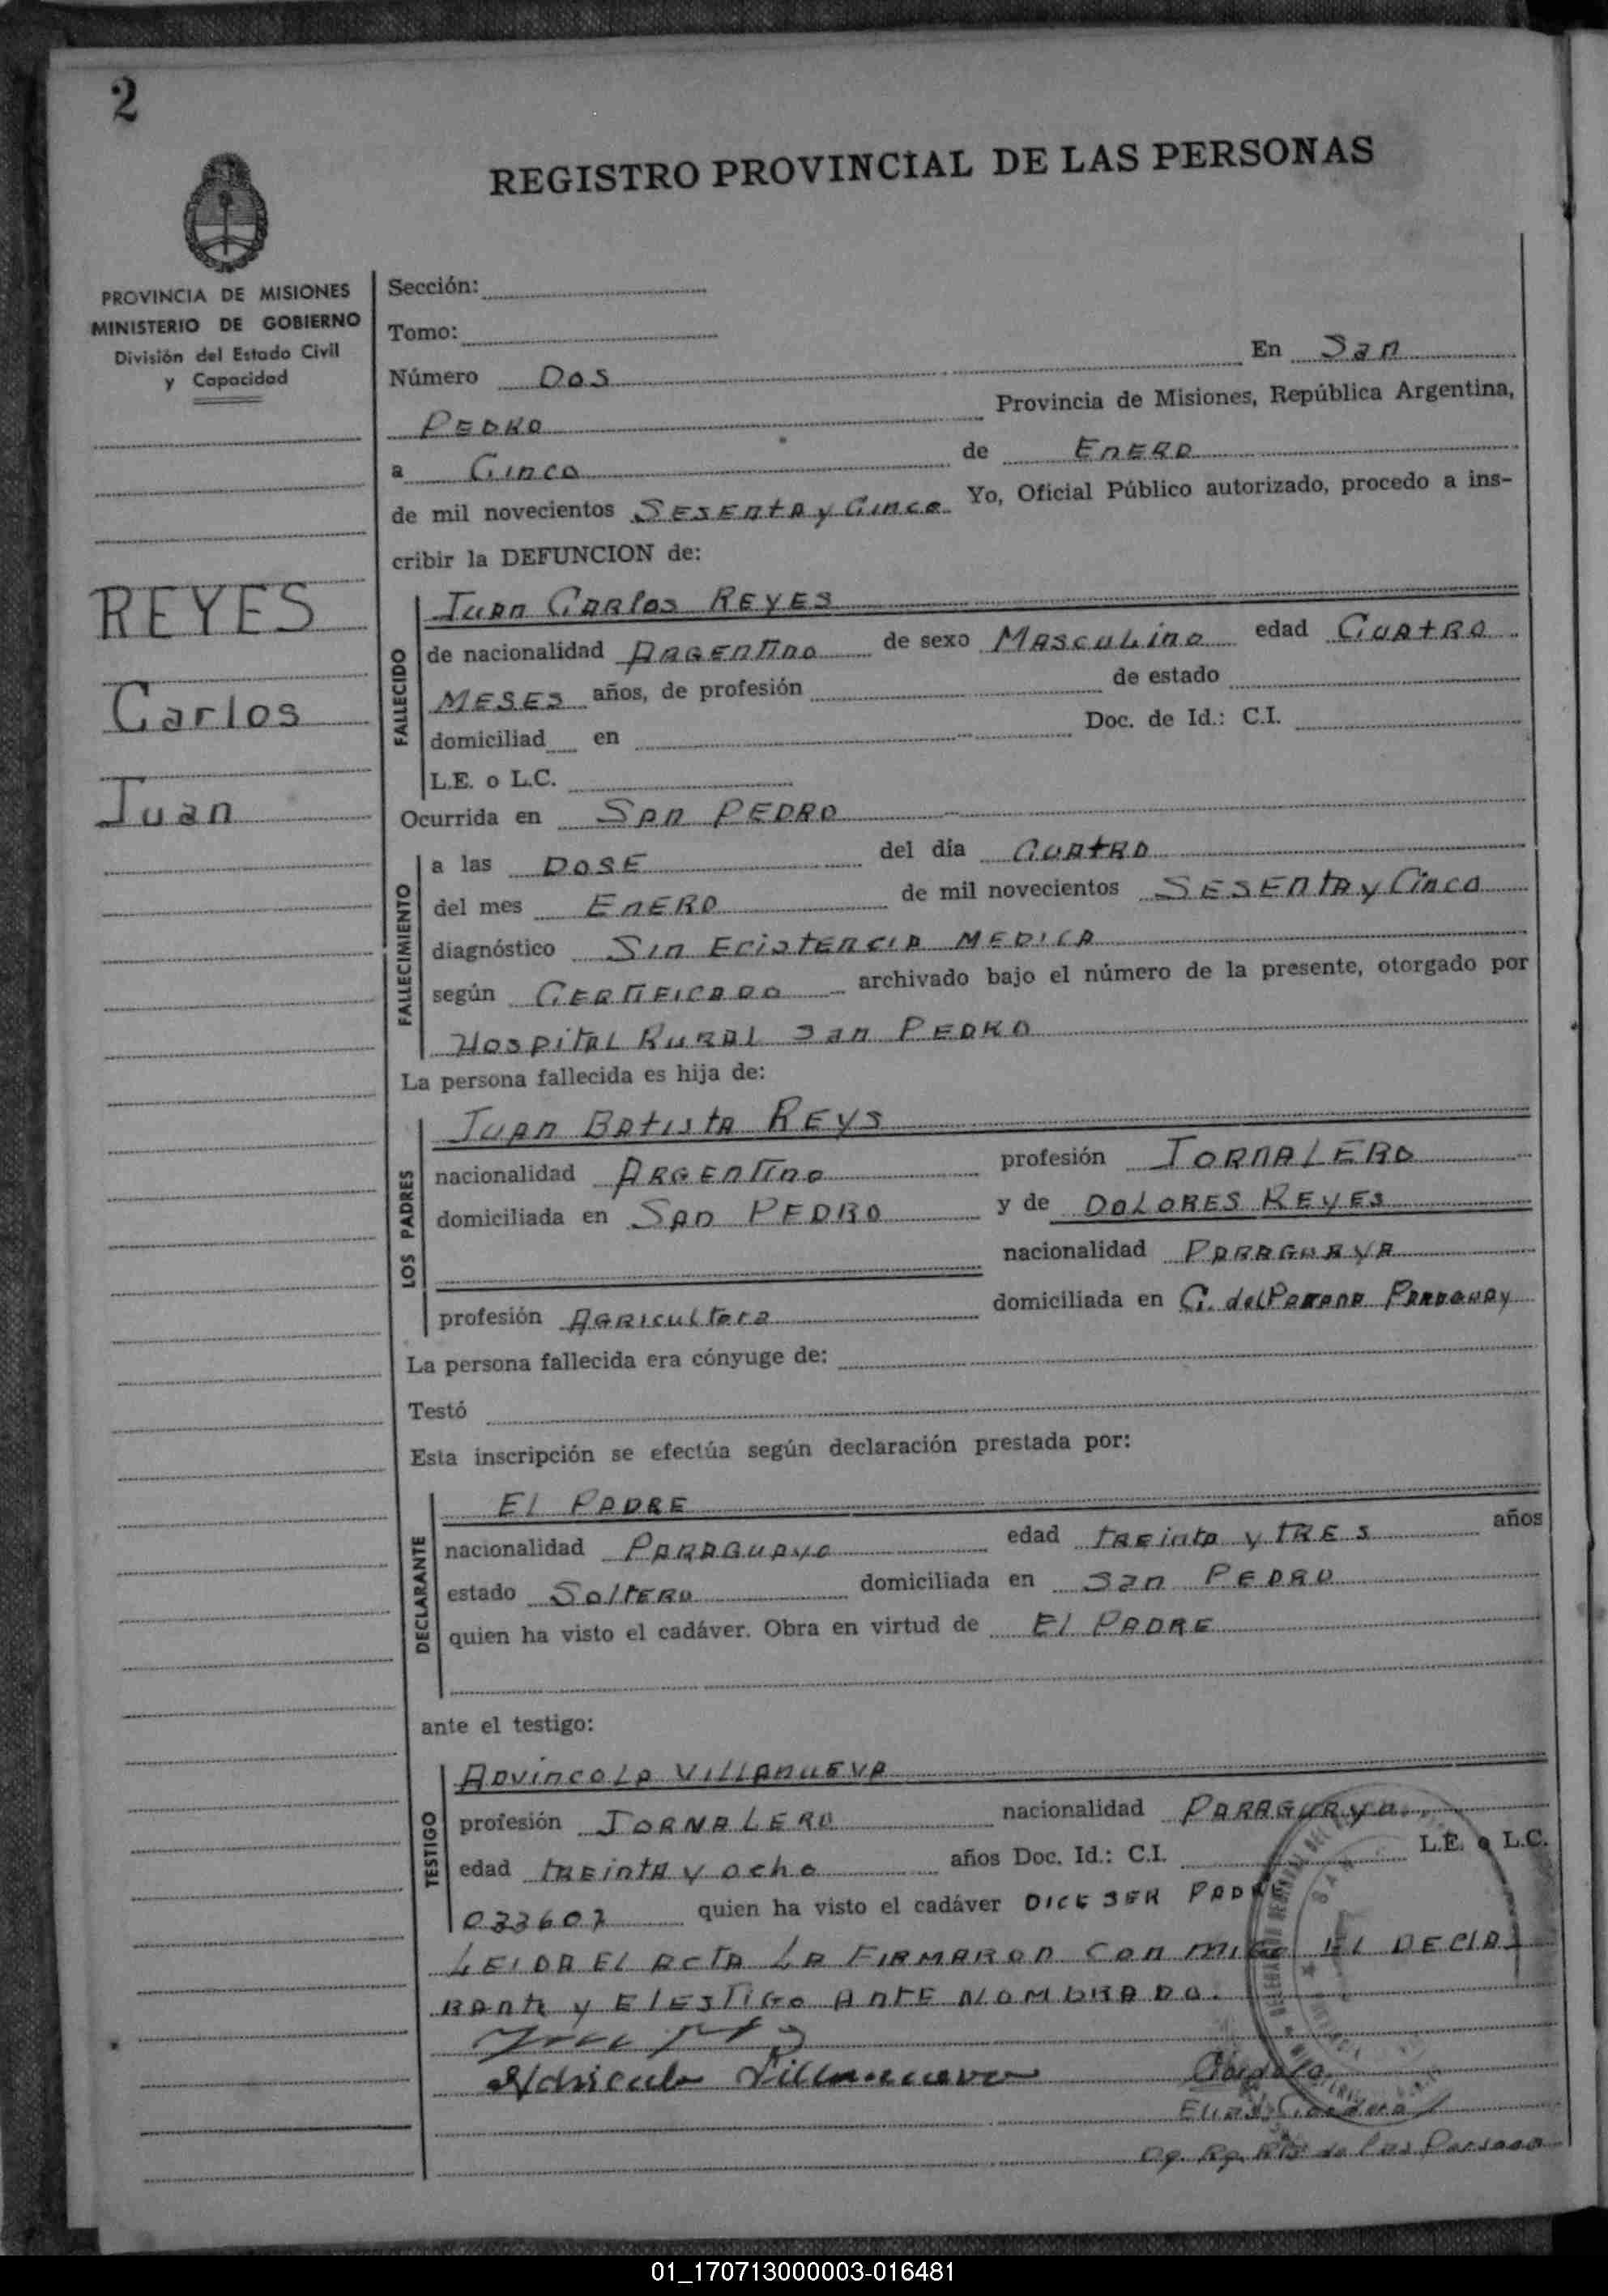 2
REGISTRO PROVINCIAL DE LAS PERSONAS
PROVINCIA DE MISIONES
MINISTERIO DE GOBIERNO
División del Estado Civil
y Capacidad
REYES
Carlos
Juan
Sección:
Tomo:
Número Dos En San
PEDRO Provincia de Misiones, República Argentina,
a Cinco de ENERO
de mil novecientos SESENTA y Cinco Yo, Oficial Público autorizado, procedo a ins-
cribir la DEFUNCION de:
FALLECIDO
Juan Carlos REYES
de nacionalidad ARGENTINO de sexo MASCULINO edad CUATRO
MESES años, de profesión de estado
domiciliad en Doc. de Id.: C.I.
L.E. o L.C.
Ocurrida en SAN PEDRO
FALLECIMIENTO
a las DOSE del día CUATRO
del mes ENERO de mil novecientos SESENTA y Cinco
diagnóstico SIN ECISTENCIA MEDICA
según CERTIFICADO archivado bajo el número de la presente, otorgado por
HOSPITAL RURAL San PEDRO
La persona fallecida es hija de:
LOS PADRES
JUAN BATISTA REYS
nacionalidad ARGENTINO profesión JORNALERO
domiciliada en SAN PEDRO y de DOLORES REYES
nacionalidad PARAGUAYA
profesión AGRICULTORA domiciliada en C. del PARANA PARAGUAY
La persona fallecida era cónyuge de:
Testó
Esta inscripción se efectúa según declaración prestada por:
DECLARANTE
El PADRE
nacionalidad PARAGUAYO edad TREINTA y TRES años
estado SOLTERO domiciliada en San PEDRO
quien ha visto el cadáver. Obra en virtud de El PADRE
ante el testigo:
TESTIGO
ADVINCOLA VILLANUEVA
profesión JORNALERO nacionalidad PARAGUAYA
edad TREINTA y ocho años Doc. Id.: C.I. L.E. o L.C.
033607 quien ha visto el cadáver DICE SER PADRE
LEIDA EL ACTA LA FIRMARON CON MIGO EL DECLA
RANTE y ELESTIGO ANTE NOMBRADO.
Villanueva
de las Persona
01_170713000003-016481